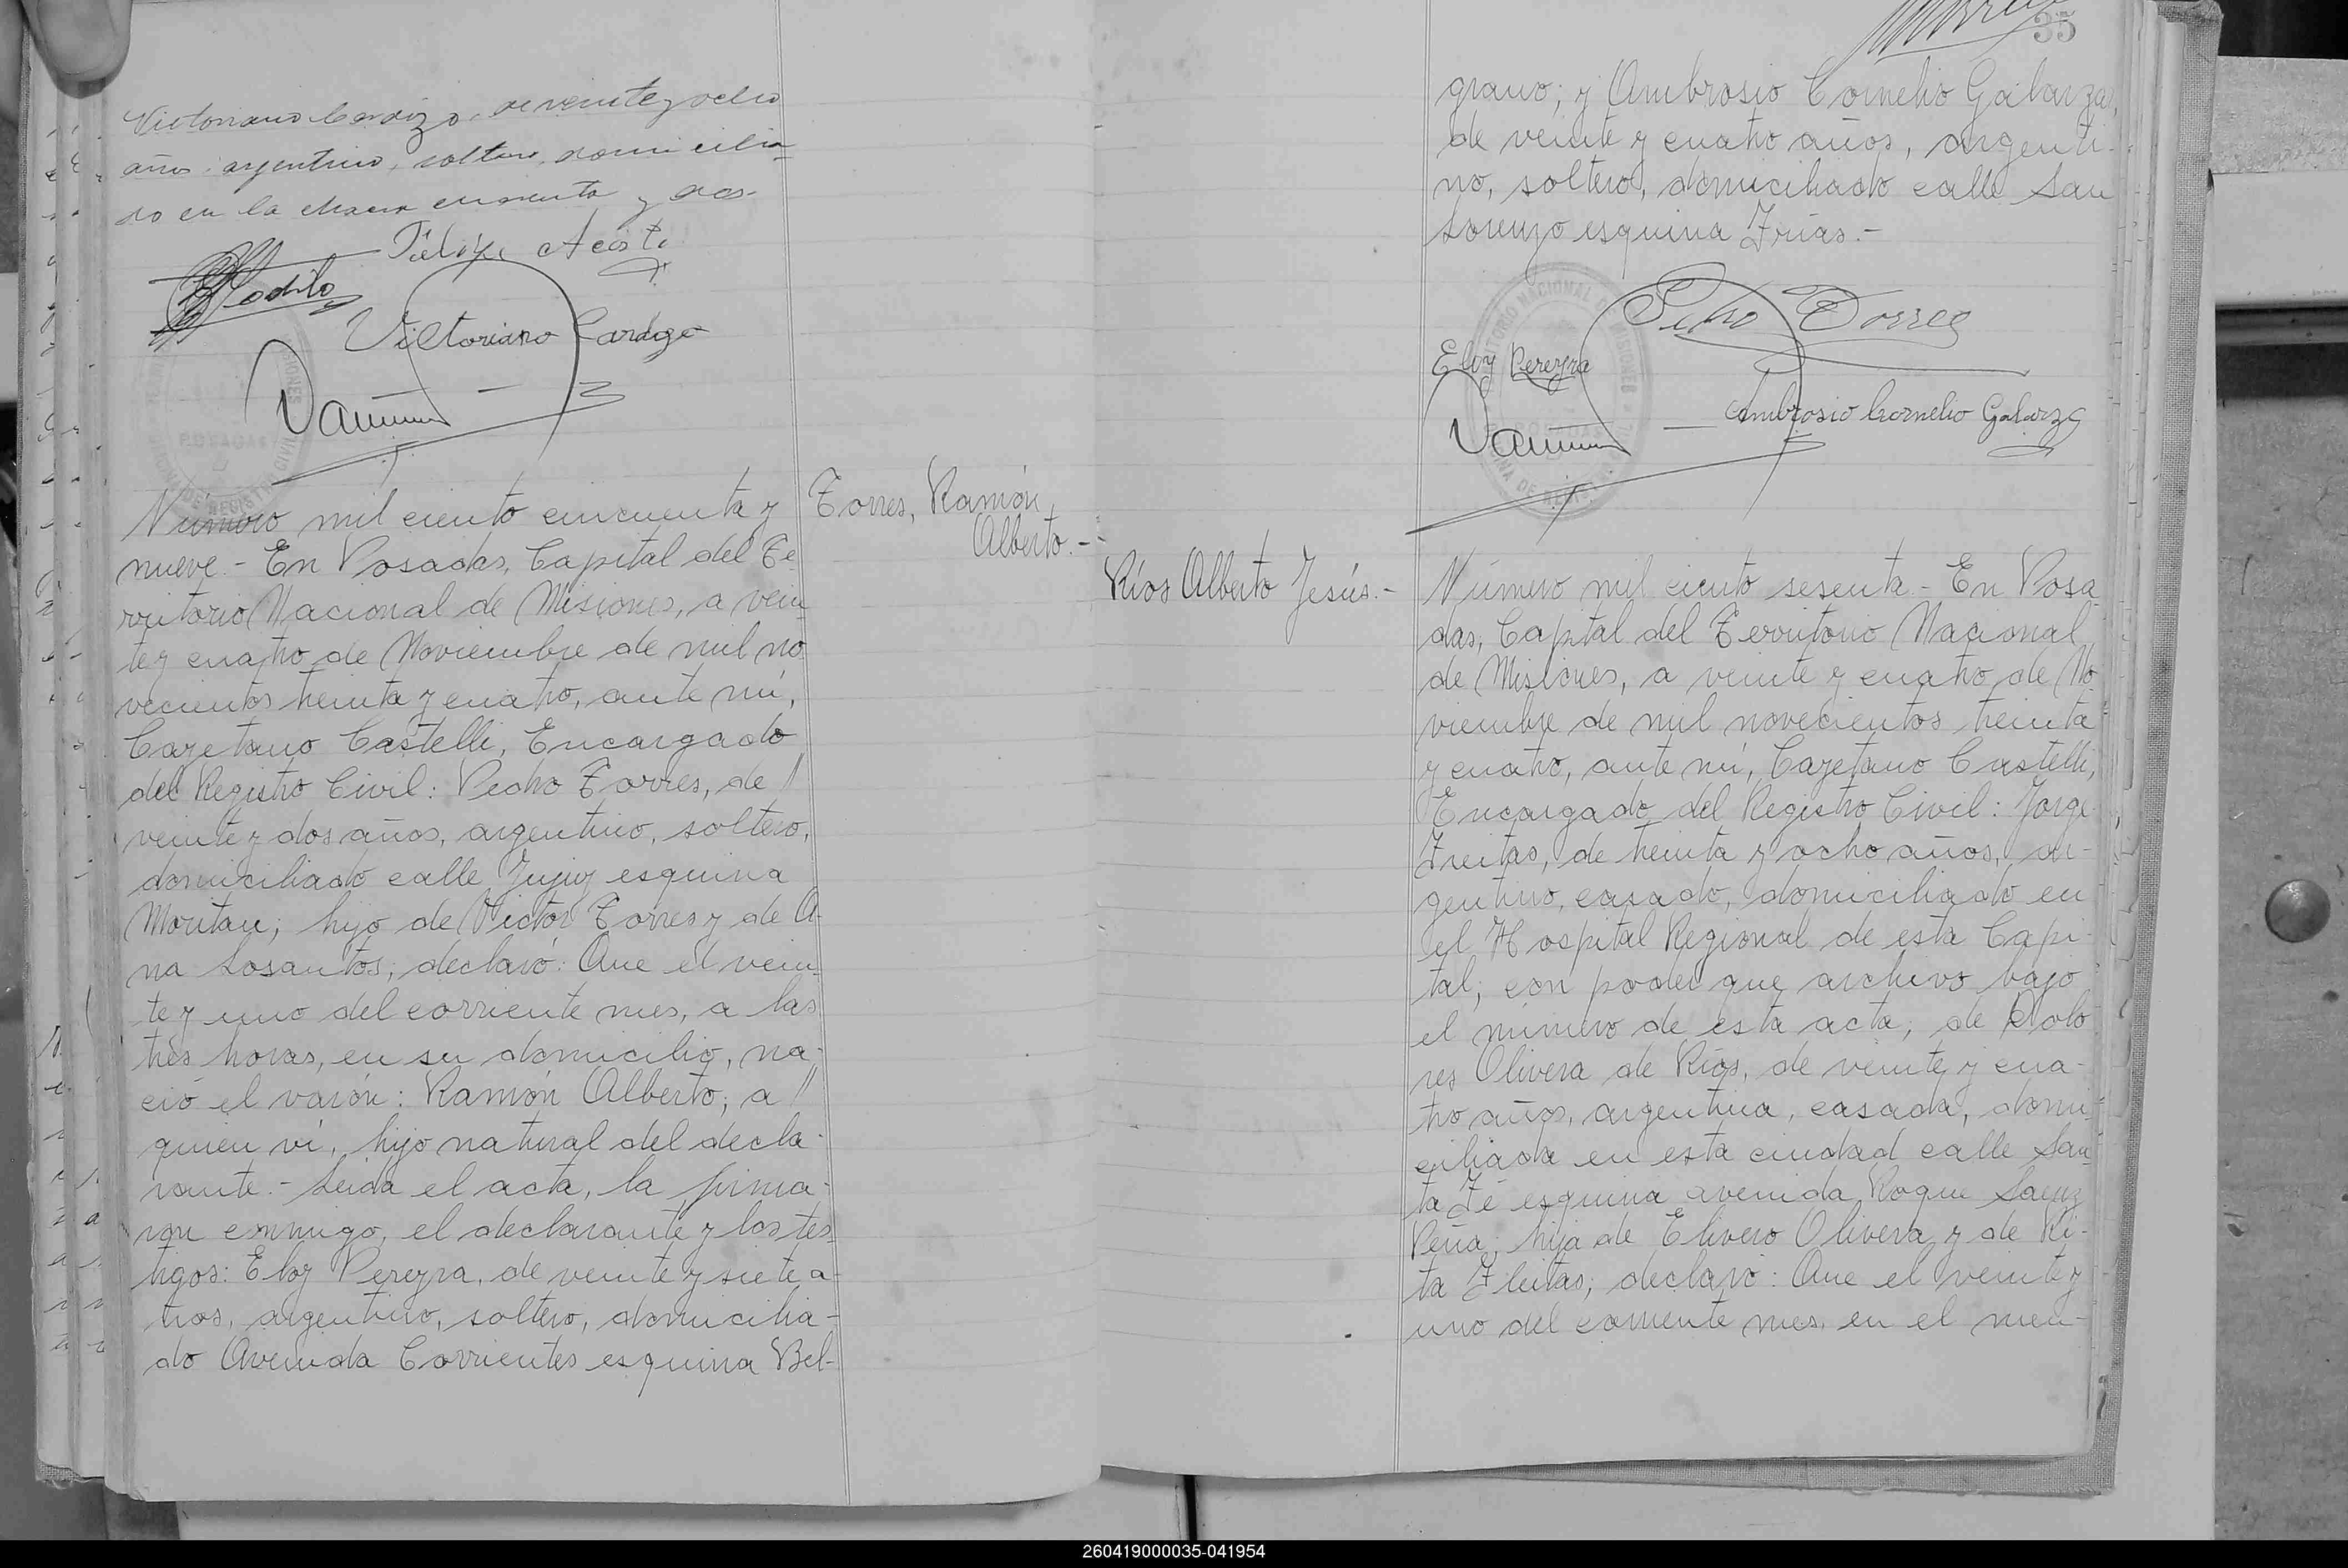 Victoriano Cardozo, de veinte y ocho
años, argentino, soltero, domicilia-
do en la chacra cincuenta y dos.-
Felipe Acosta
Victoriano Cardozo
Número mil ciento cincuenta y
nueve.- En Posadas, Capital del Te-
rritorio Nacional de Misiones, a vein-
te y cuatro de Noviembre de mil no-
vecientos treinta y cuatro, ante mí,
Cayetano Castelli, Encargado
del Registro Civil: Pedro Torres, de //
veinte y dos años, argentino, soltero,
domiciliado calle Jujuy esquina
Moritan; hijo de Victor Torres y de A-
na Losantos; declaró: Que el vein-
te y uno del corriente mes, a las
tres horas, en su domicilio, na-
ció el varón: Ramón Alberto; a //
quien ví, hijo natural del decla-
rante.- Leída el acta, la firma-
ron conmigo, el declarante y los tes-
tigos: Eloy Pereyra, de veinte y siete a-
ños, argentino, soltero, domicilia-
do Avenida Corrientes esquina Bel-
Torres, Ramón
Alberto.-
35
grano; y Ambrosio Cornelio Galarza,
de veinte y cuatro años, argenti-
no, soltero, domiciliado calle San
Lorenzo esquina Frías.-
Pedro Torres
Eloy Pereyra
Ambrosio Cornelio Galarza
Ríos Alberto Jesús.-
Número mil ciento sesenta.- En Posa-
das, Capital del Territorio Nacional
de Misiones, a veinte y cuatro de No-
viembre de mil novecientos treinta
y cuatro, ante mí, Cayetano Castelli,
Encargado del Registro Civil: Jorge
Freitas, de treinta y ocho años, ar-
gentino, casado, domiciliado en
el Hospital Regional de esta Capi-
tal; con poder que archivo bajo
el número de esta acta, de Dolo-
res Olivera de Ríos, de veinte y cua-
tro años, argentina, casada, domi-
ciliada en esta ciudad calle San-
ta Fé esquina avenida Roque Saenz
Peña; hija de Olivera y de Ri-
ta Fleitas; declaró: Que el veinte y
uno del corriente mes, en el men-
260419000035-041954